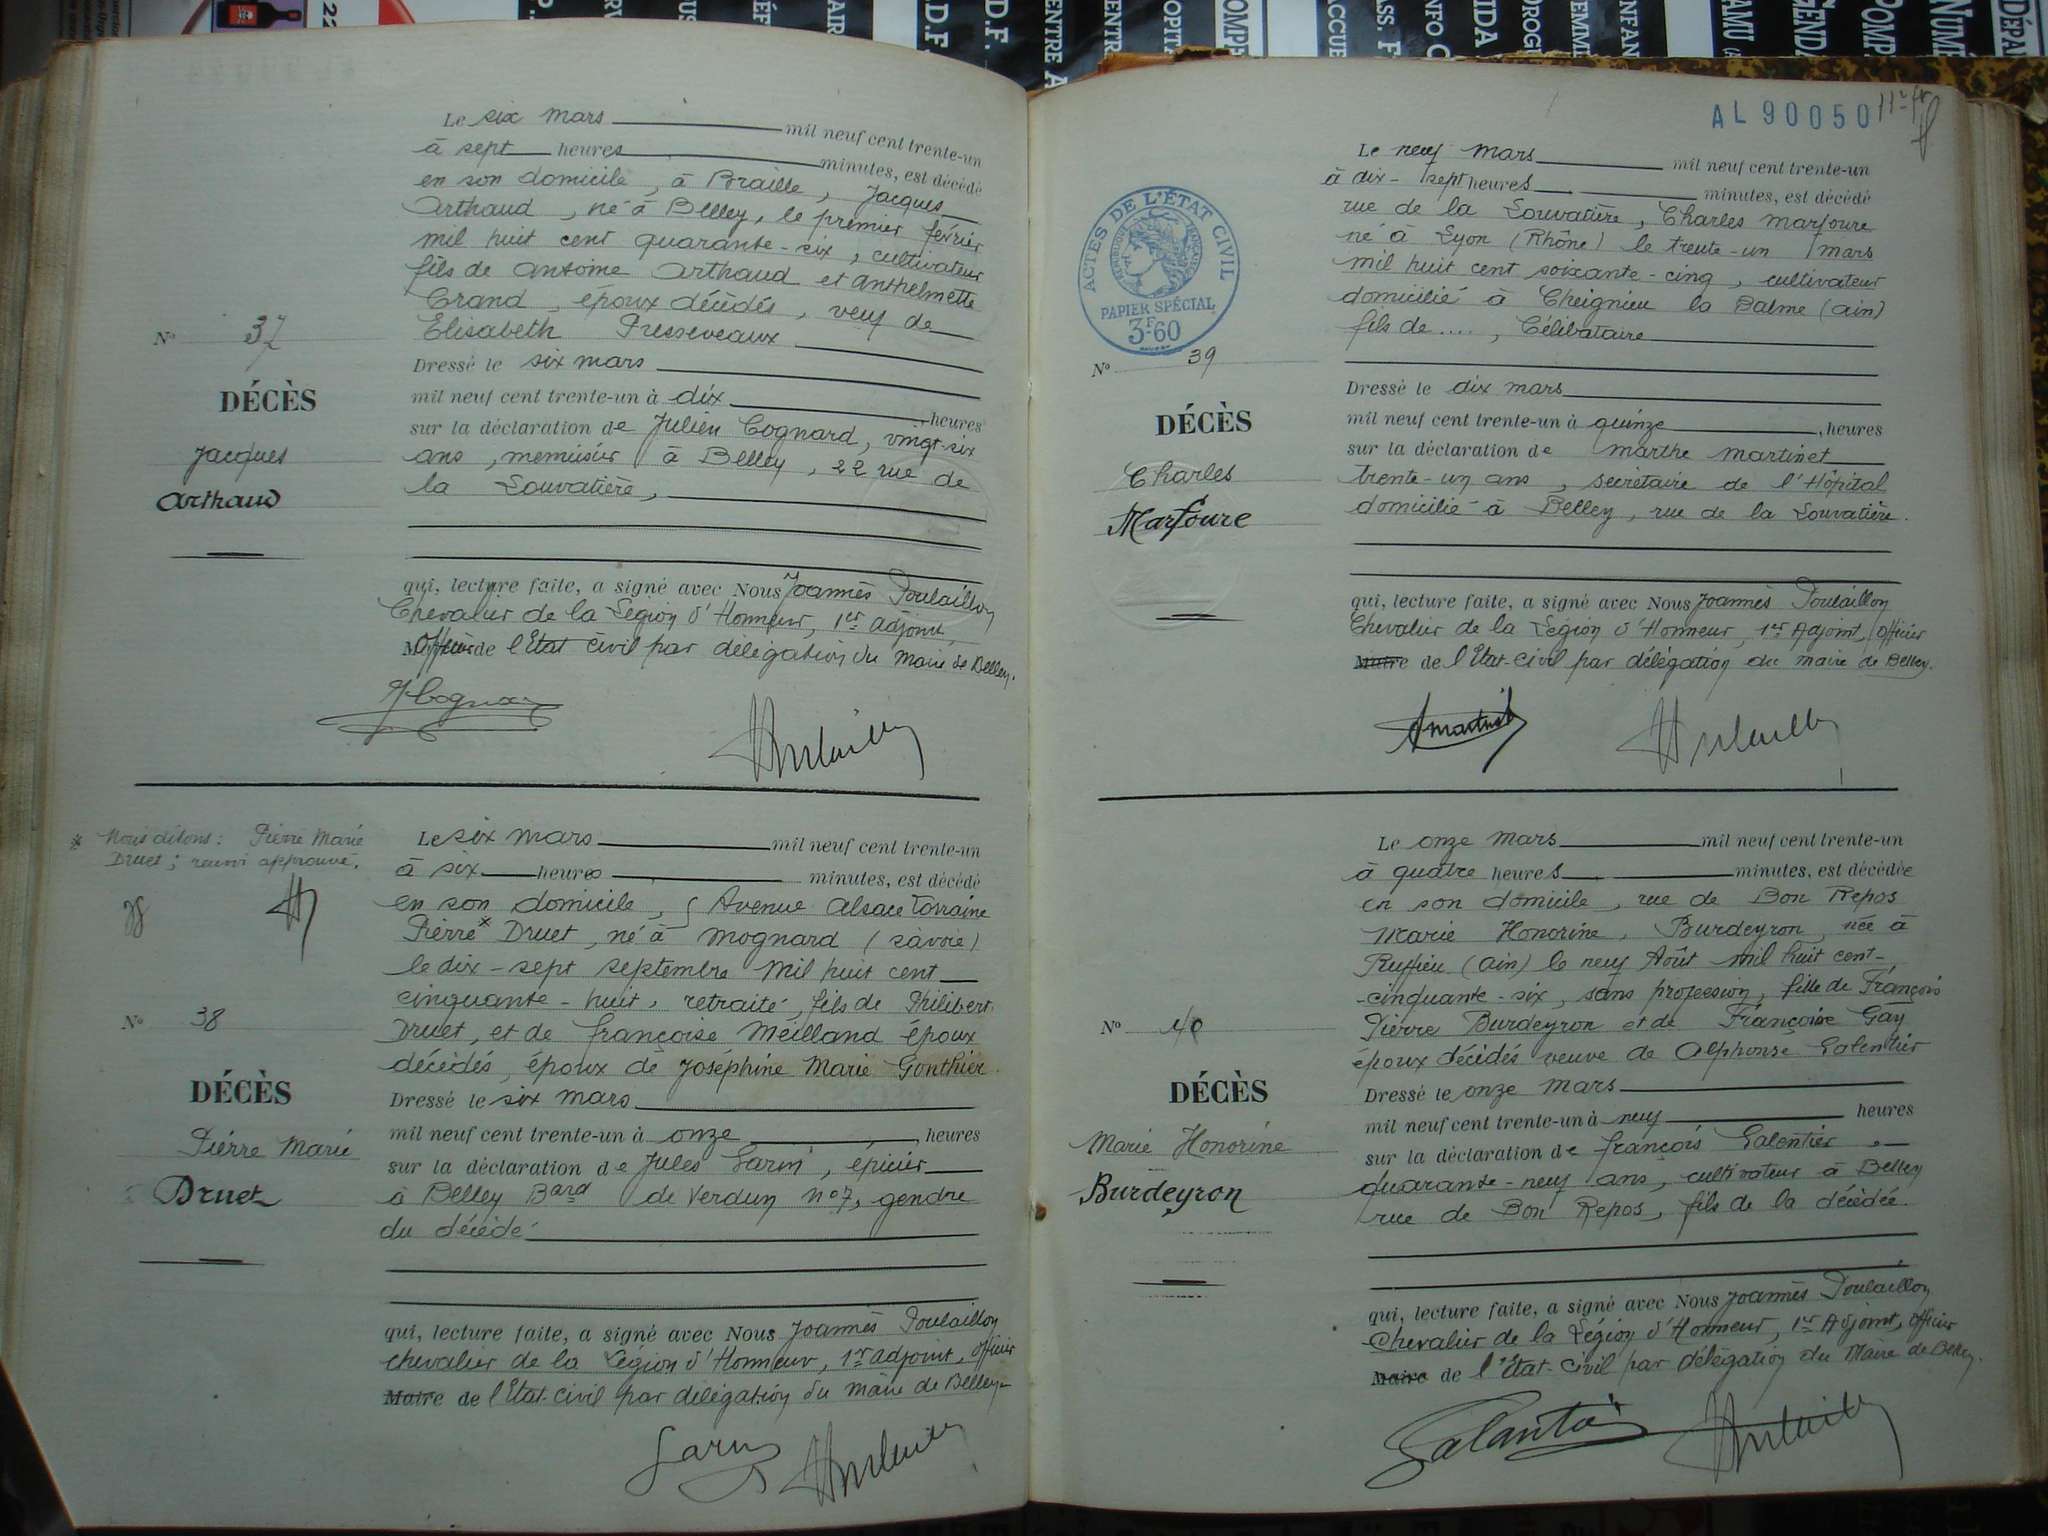 Le six mars mil neuf cent trente-un
à sept heures minutes, est décédé
en son domicile, à Braille, Jacques
Arthaud, né à Belley, le premier février
mil huit cent quarante-six, cultivateur
fils de Antoine Arthaud et Anthelmette
Grand, époux décédés, veuf de
Elisabeth Presseveaux
Nº 37
Dressé le six mars
DÉCÈS
mil neuf cent trente-un à dix heures
sur la déclaration de Julien Cognard, vingt-six
Jacques
ans, menuisier à Belley, 22 rue de
Arthaud
la Louvatière,
qui, lecture faite, a signé avec Nous Joannès Poulaillon
Chevalier de la Légion d'Honneur, 1er adjoint,
Officier de l'Etat civil par délégation du maire de Belley.
JCognard
* Nous disons: Pierre Marie
Druet; renvoi approuvé.
Le six mars mil neuf cent trente-un
à six heures minutes, est décédé
en son domicile, 5 Avenue Alsace Lorraine
Pierre* Druet, né à Mognard (Savoie)
le dix-sept septembre mil huit cent
cinquante-huit, retraité, fils de Philibert
Nº 38
Druet, et de Françoise Meilland époux
décédés, époux de Joséphine Marie Gonthier.
DÉCÈS
Dressé le six mars
mil neuf cent trente-un à onze, heures
Pierre Marie
sur la déclaration de Jules Sarin, épicier
Druet
à Belley Bard de Verdun nº 7, gendre
du décédé
qui, lecture faite, a signé avec Nous Joannès Poulaillon
chevalier de la Légion d'Honneur, 1er adjoint, officier
Maire de l'Etat-civil par délégation du maire de Belley
AL 90050
Le neuf mars mil neuf cent trente-un
à dix-sept heures minutes, est décédé
rue de la Louvatière, Charles Marfoure
né à Lyon (Rhône) le trente-un mars
mil huit cent soixante-cinq, cultivateur
domicilié à Cheignieu la Balme (ain)
fils de ...., Célibataire
ACTES DE L'ÉTAT CIVIL
RÉPUBLIQUE FRANÇAISE
PAPIER SPÉCIAL
3F60
Nº 39
Dressé le dix mars
DÉCÈS
mil neuf cent trente-un à quinze, heures
sur la déclaration de marthe martinet
Charles
trente-un ans, secrétaire de l'Hôpital
Marfoure
domicilié à Belley, rue de la Louvatière.
qui, lecture faite, a signé avec Nous Joannès Poulaillon
Chevalier de la Légion d'Honneur, 1er Adjoint, officier
Maire de l'Etat-civil par délégation du maire de Belley.
Le onze mars mil neuf cent trente-un
à quatre heures minutes, est décédée
en son domicile, rue de Bon Repos
Marie Honorine, Burdeyron, née à
Ruffieu (ain) le neuf Août mil huit cent-
-cinquante-six, sans profession, fille de François
Nº 40
Pierre Burdeyron et de Françoise Gay
époux décédés veuve de Alphonse Galentier
DÉCÈS
Dressé le onze mars
mil neuf cent trente-un à neuf heures
Marie Honorine
sur la déclaration de François Galentier
Burdeyron
quarante-neuf ans, cultivateur à Belley
rue de Bon Repos, fils de la décédée.
qui, lecture faite, a signé avec Nous Joannès Poulaillon
Chevalier de la Légion d'Honneur, 1er Adjoint, officier
Maire de l'Etat-civil par délégation du Maire de Belley.